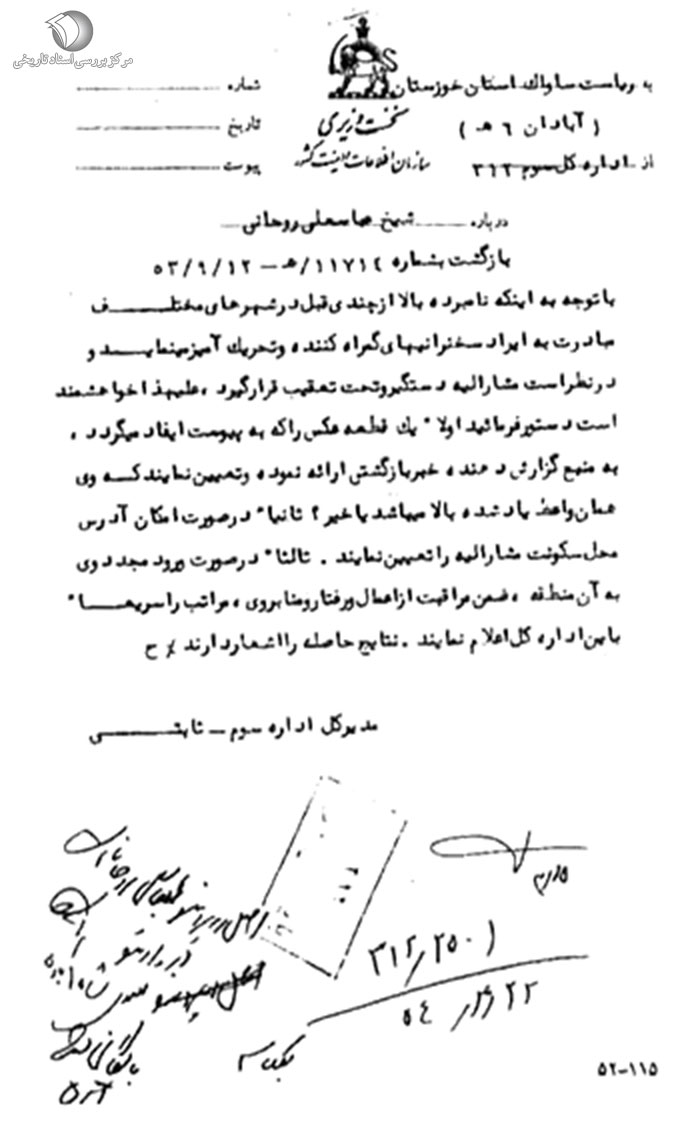 مرکز بررسی اسناد تاریخی
به ریاست ساواک استان خوزستان
( آبادان ٦ هـ )
از اداره کل سوم ٣١٢
نخست وزیری
سازمان اطلاعات و امنیت کشور
شماره
تاریخ
پیوست
درباره شیخ عباسعلی روحانی
بازگشت بشماره ١١٧١٤/هـ - ٥٣/٩/١٢
باتوجه به اینکه نامبرده بالا از چندی قبل در شهرهای مختلف
مبادرت به ایراد سخنرانیهای گمراه کننده و تحریک آمیز مینماید و
در نظر است مشارالیه دستگیر و تحت تعقیب قرار گیرد ، علیهذا خواهشمند
است دستور فرمائید اولا" یک قطعه عکس را که به پیوست ایفاد میگردد ،
به منبع گزارش دهنده خبر بازگشتی ارائه نموده و تعیین نمایند که وی
همان واعظ یاد شده بالا میباشد یا خیر ؟ ثانیا" در صورت امکان آدرس
محل سکونت مشارالیه را تعیین نمایند . ثالثا" در صورت ورود مجدد وی
به آن منطقه ، ضمن مراقبت از اعمال و رفتار و منابر وی ، مراتب را سریعا"
باین اداره کل اعلام نمایند . نتایج حاصله را اشعار دارند ٪ ح
مدیرکل اداره سوم - ثابتی
٣١٢/٢٥٠١
٥٢-١١٥